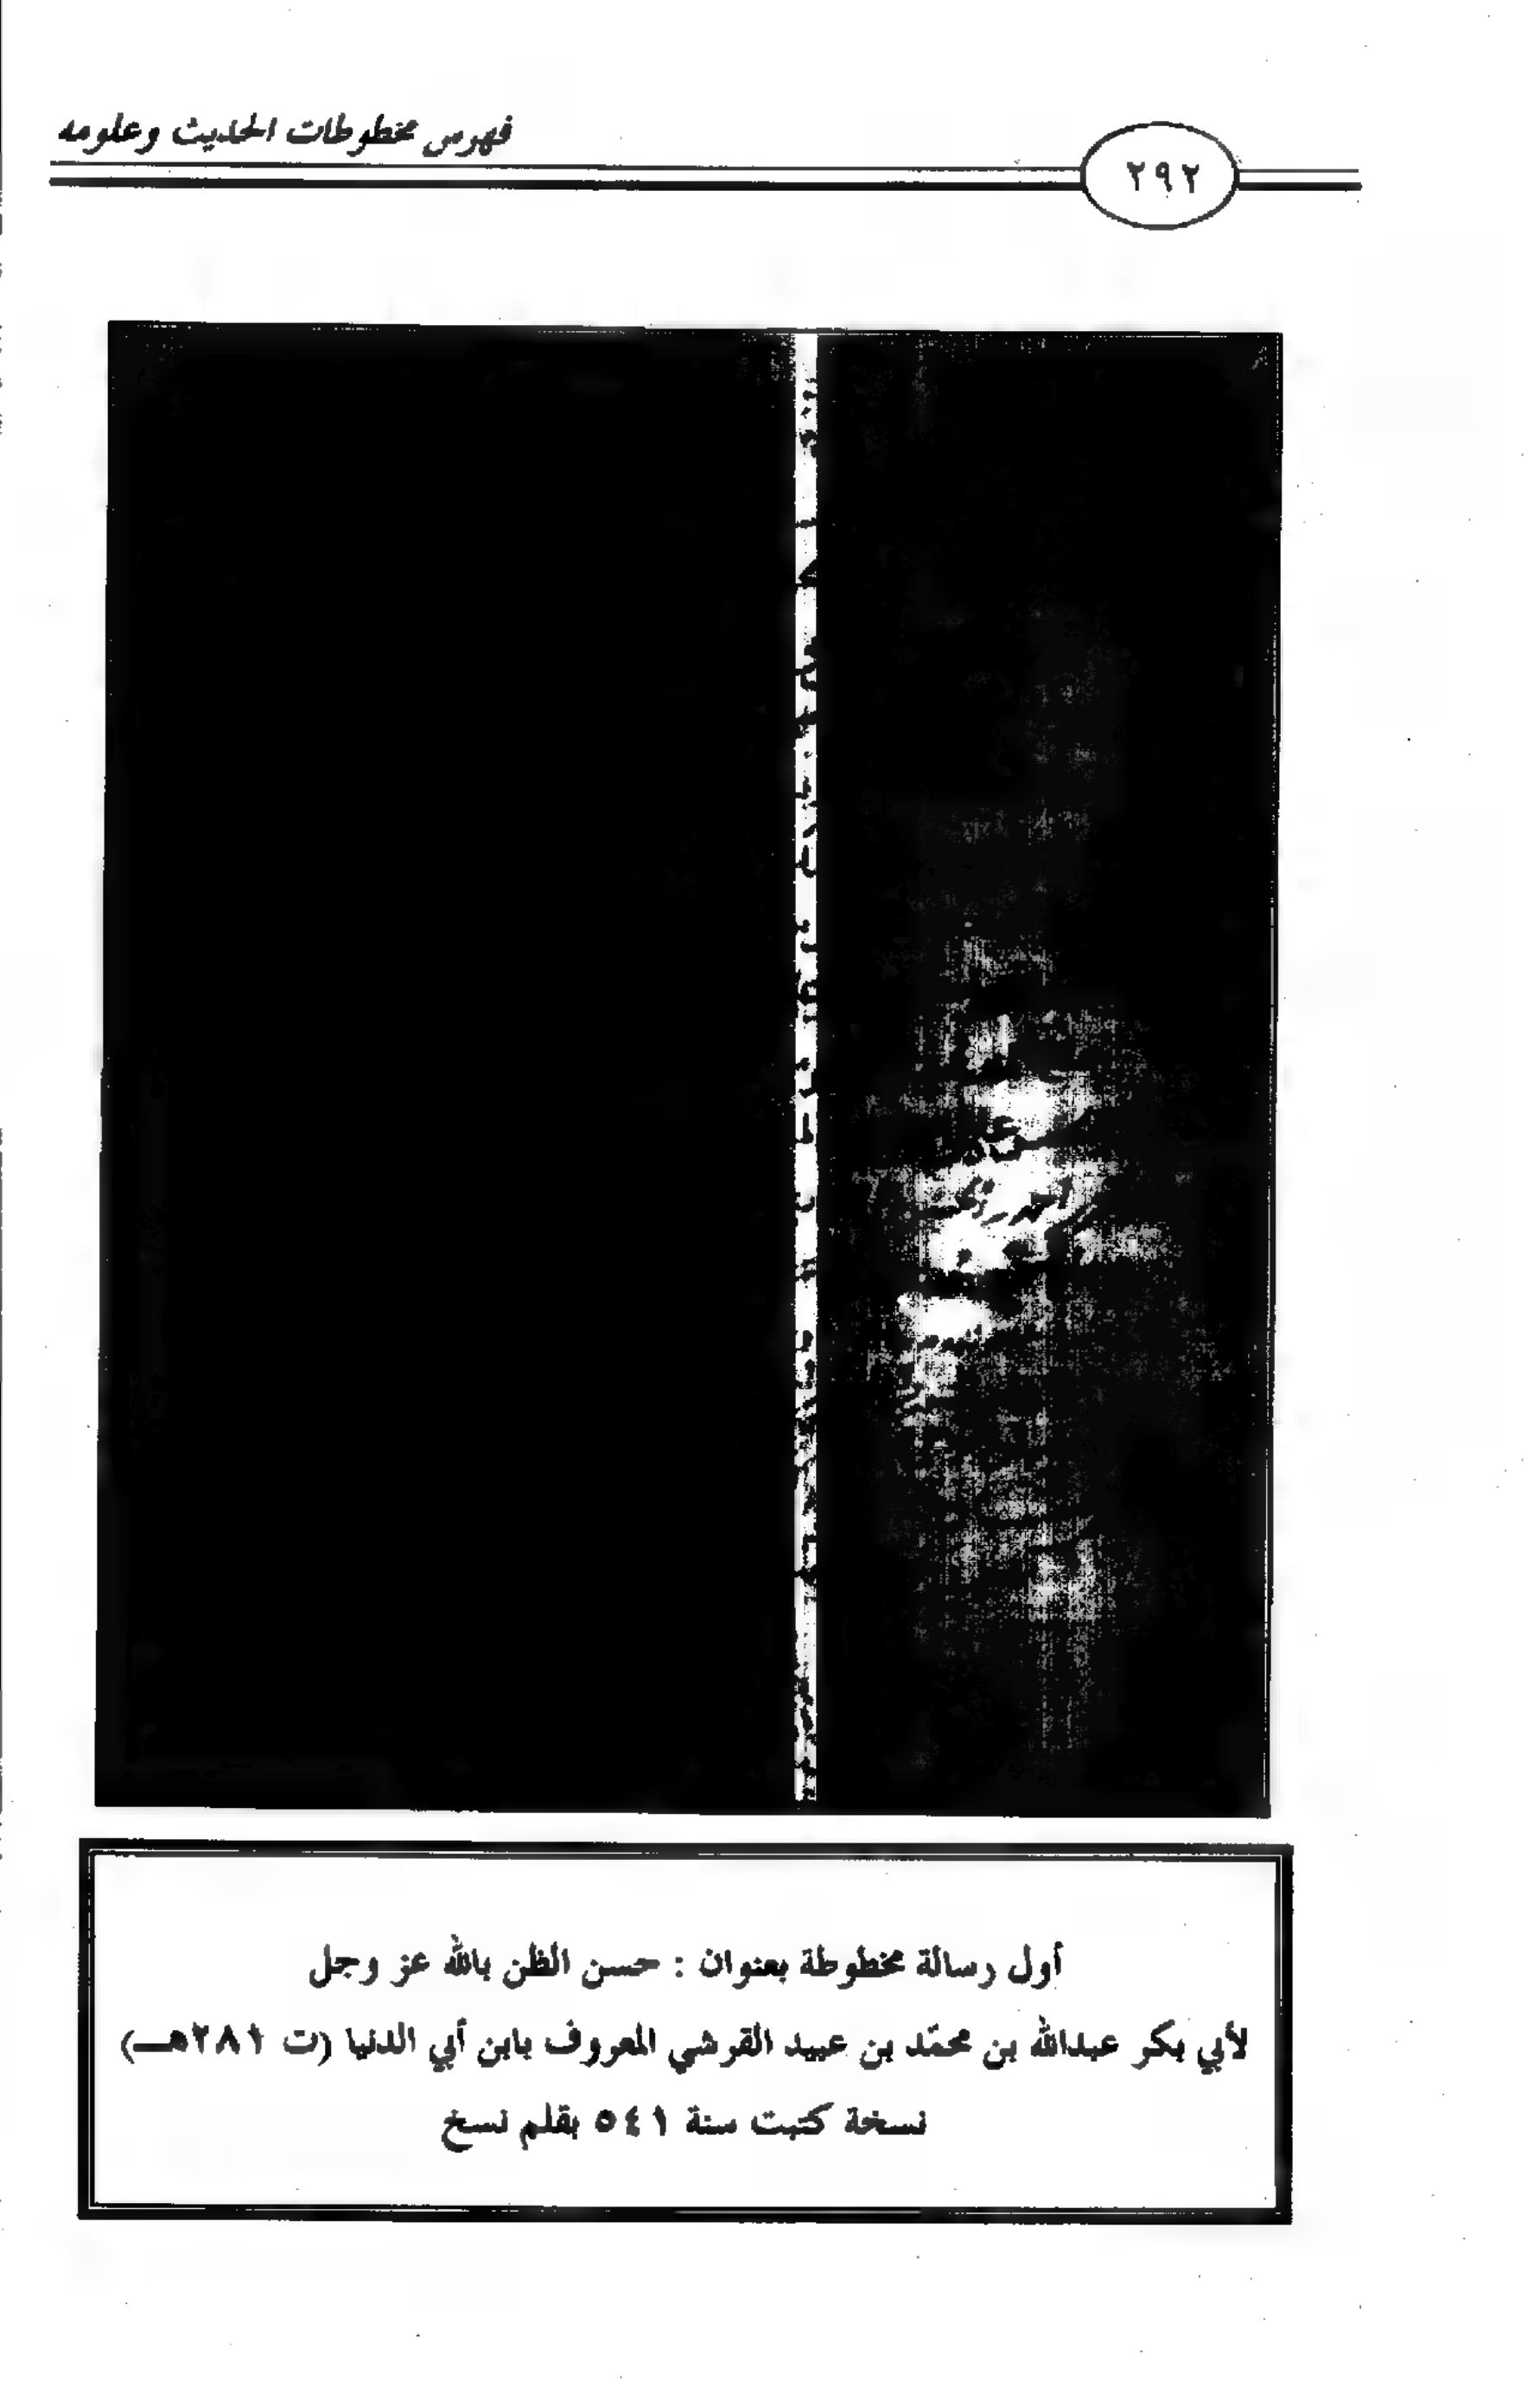 فهرس مخطوطات الحديث وعلومه
٢٩٢
أول رسالة مخطوطة بعنوان : حسن الظن بالله عز وجل
لأبي بكر عبدالله بن محمّد بن عبيد القرشي المعروف بابن أبي الدنيا (ت ٢٨١هـ)
نسخة كتبت سنة ٥٤١ بقلم نسخ